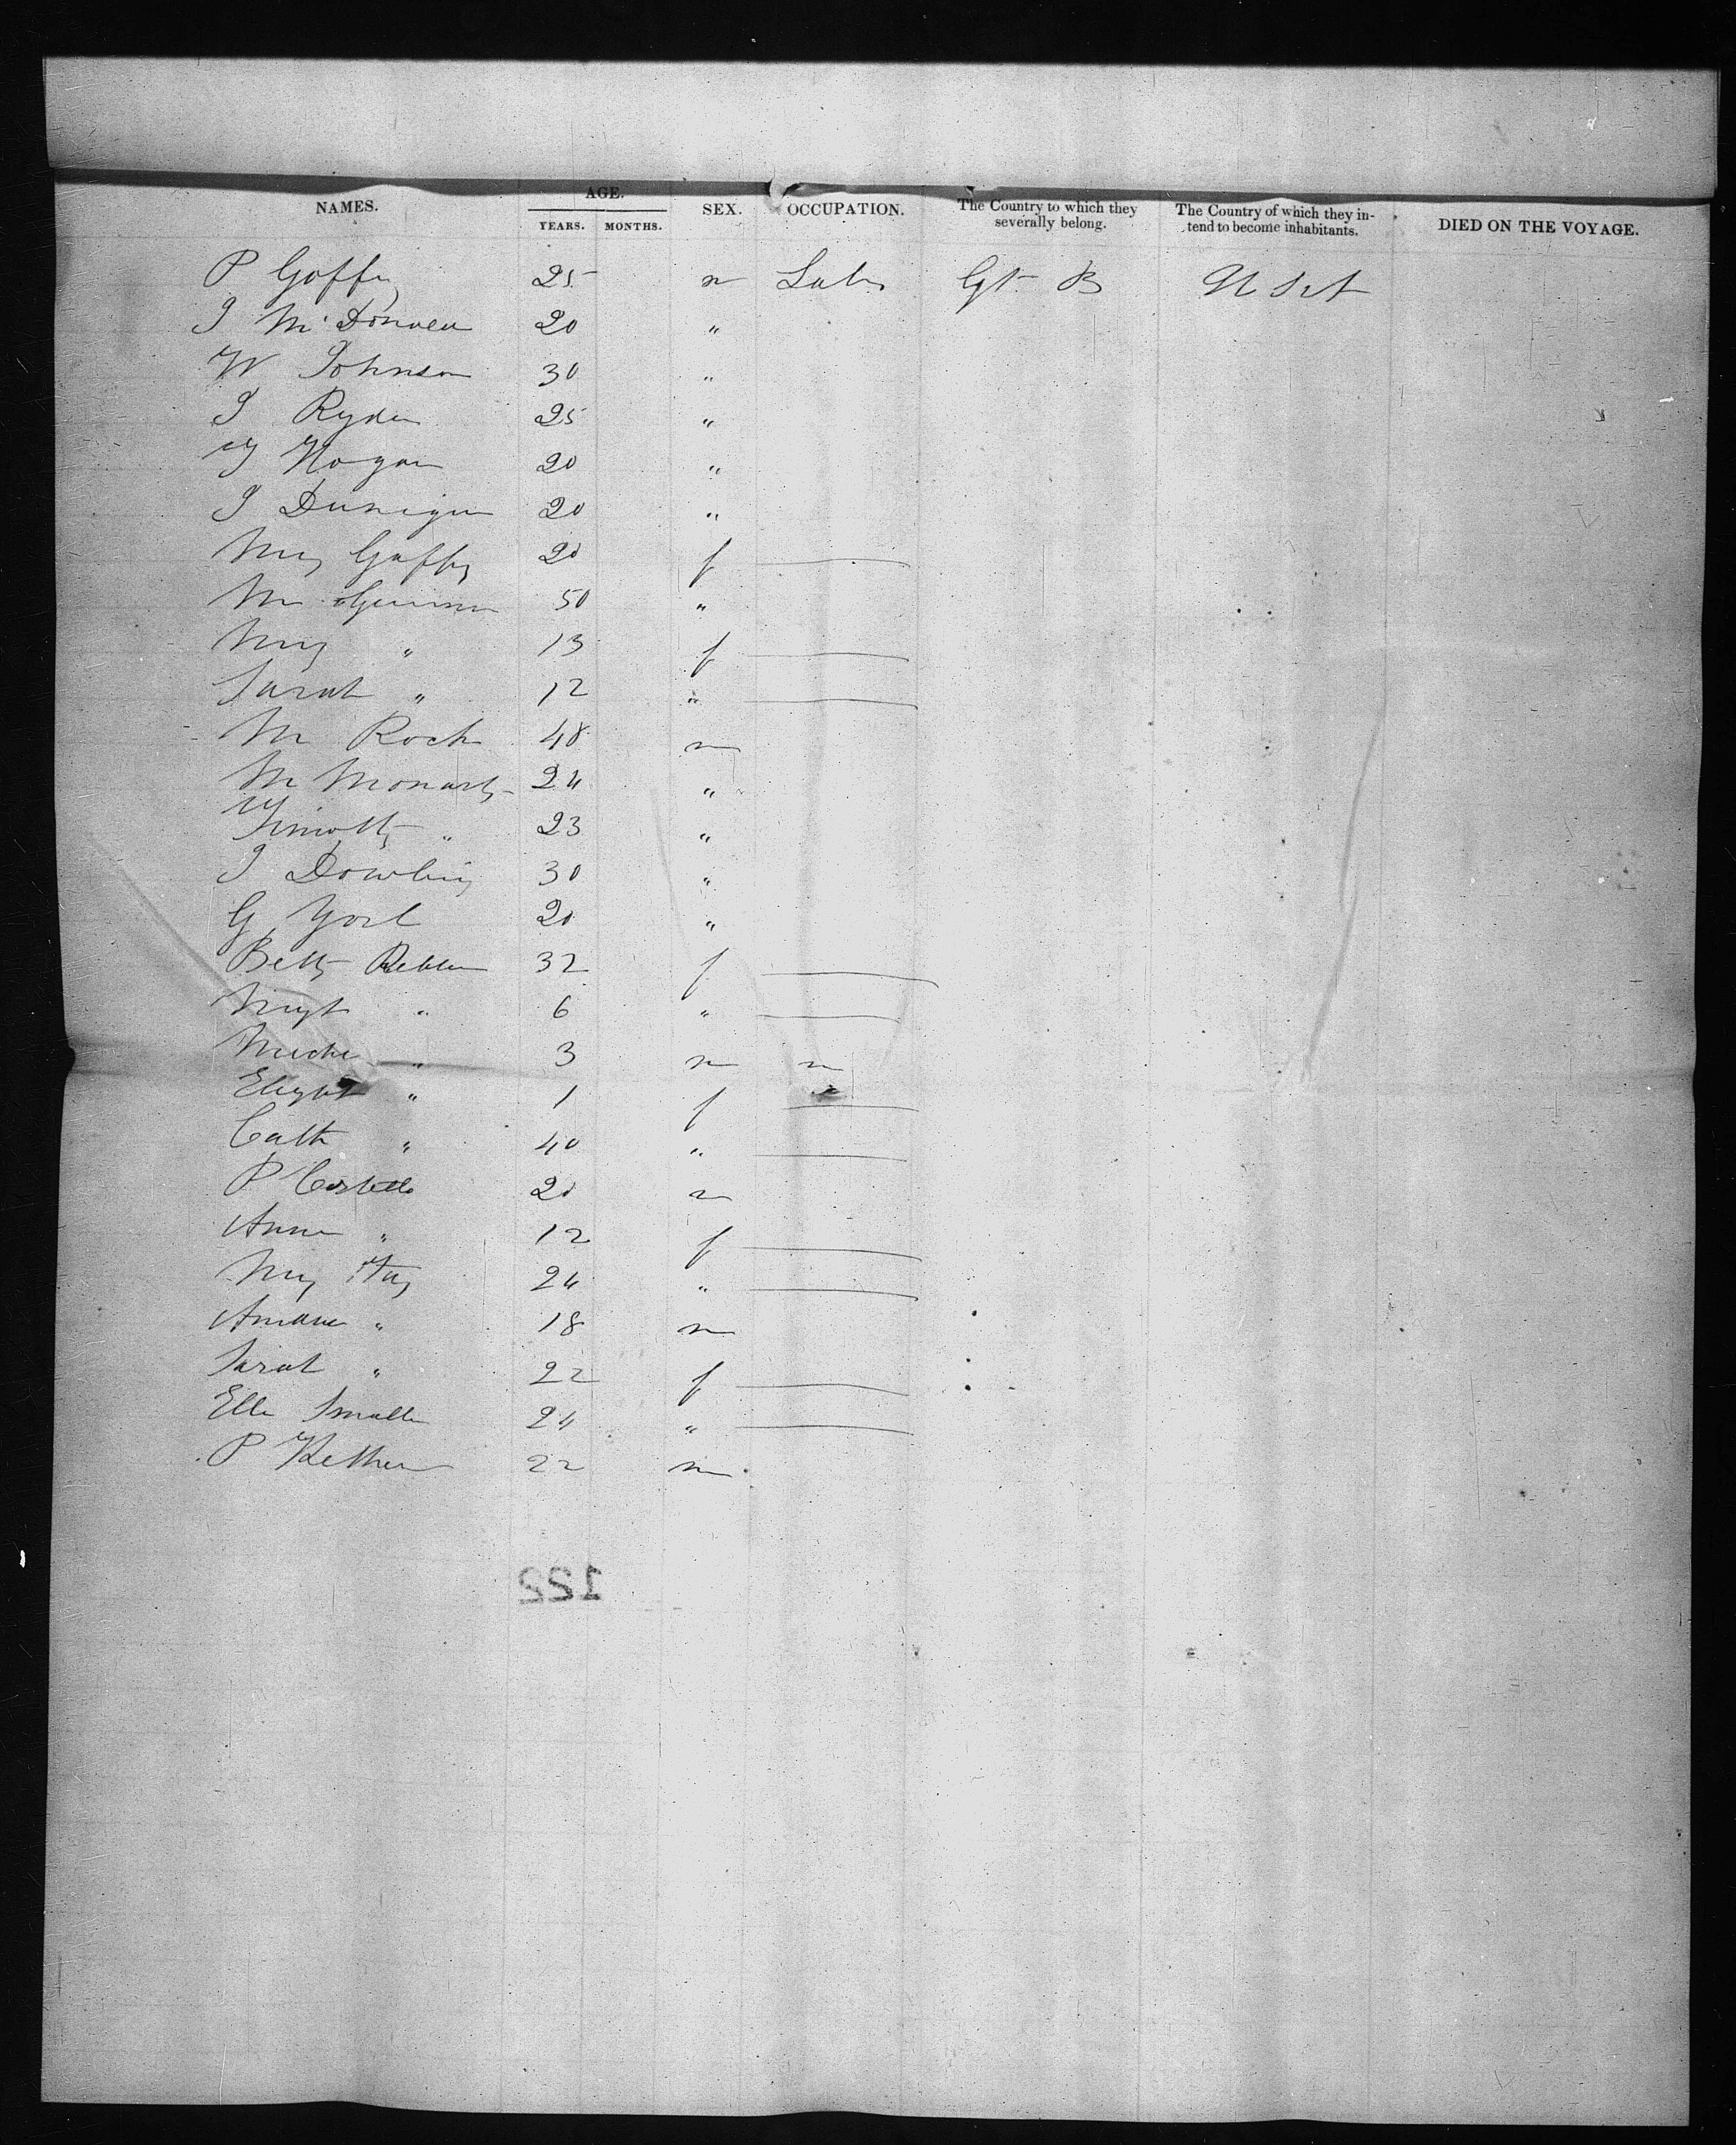 NAMES. AGE. YEARS. MONTHS. SEX. OCCUPATION. The Country to which they severally belong. The Country of which they intend to become inhabitants. DIED ON THE VOYAGE.
P Goffy 25 m Labr Gt B U S A
J McDonald 20 "
W Johnson 30 "
J Ryder 25 "
T Hogan 20 "
J Dunigan 20 "
My Goffy 20 f
M 50 "
My " 13 f
Sarah " 12 "
M Roch 48 m
M 24 "
Timothy " 23 "
J Dowling 30 "
G 20 "
Betty 32 f
Mgt " 6 "
Miche " 3 m
" 1 f
Cath " 40 "
P Costello 20 m
Anne " 12 f
My 24 "
Andrew " 18 m
Sarah " 22 f
Elle 24 "
P 22 m
122